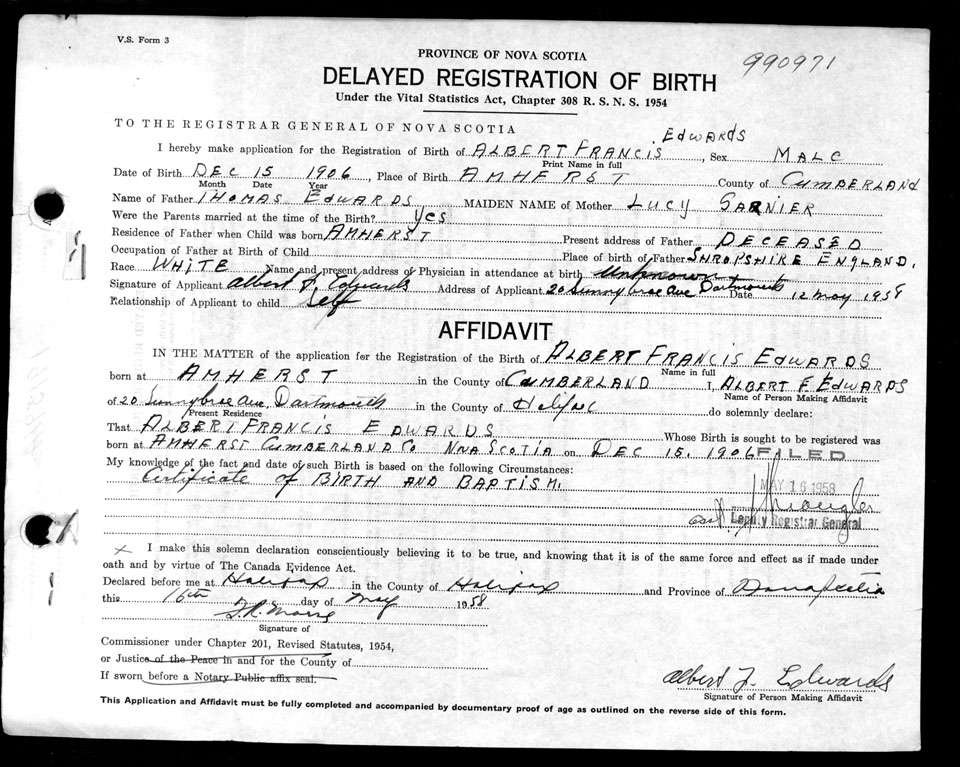 V.S. Form 3
PROVINCE OF NOVA SCOTIA
990971
DELAYED REGISTRATION OF BIRTH
Under the Vital Statistics Act, Chapter 308 R. S. N. S. 1954
TO THE REGISTRAR GENERAL OF NOVA SCOTIA
EDWARDS
I hereby make application for the Registration of Birth of ALBERT FRANCIS, Sex MALE
Print Name in full
Date of Birth DEC 15 1906, Place of Birth AMHERST County of CUMBERLAND
Month Date Year
Name of Father THOMAS EDWARDS MAIDEN NAME of Mother LUCY GARNIER
Were the Parents married at the time of the Birth? Yes
Residence of Father when Child was born AMHERST Present address of Father DECEASED
Occupation of Father at Birth of Child Place of birth of Father SHROPSHIRE ENGLAND.
Race WHITE Name and present address of Physician in attendance at birth Unknown
Signature of Applicant Albert F. Edwards Address of Applicant 20 Sunnybrae Ave Dartmouth Date 12 May 1958
Relationship of Applicant to child Self
AFFIDAVIT
IN THE MATTER of the application for the Registration of the Birth of ALBERT FRANCIS EDWARDS
Name in full
born at AMHERST in the County of CUMBERLAND I, ALBERT F. EDWARDS
Name of Person Making Affidavit
of 20 Sunnybrae Ave. Dartmouth in the County of Halifax do solemnly declare:
Present Residence
That ALBERT FRANCIS EDWARDS Whose Birth is sought to be registered was
born at AMHERST CUMBERLAND CO NOVA SCOTIA on DEC 15, 1906
FILED
My knowledge of the fact and date of such Birth is based on the following Circumstances:
Certificate of BIRTH AND BAPTISM.
MAY 16 1958
Deputy Registrar General
I make this solemn declaration conscientiously believing it to be true, and knowing that it is of the same force and effect as if made under
oath and by virtue of The Canada Evidence Act.
Declared before me at Halifax in the County of Halifax and Province of Nova Scotia
this 16th day of May 1958
Signature of
Commissioner under Chapter 201, Revised Statutes, 1954,
or Justice of the Peace in and for the County of
If sworn before a Notary Public affix seal.
Albert F. Edwards
Signature of Person Making Affidavit
This Application and Affidavit must be fully completed and accompanied by documentary proof of age as outlined on the reverse side of this form.